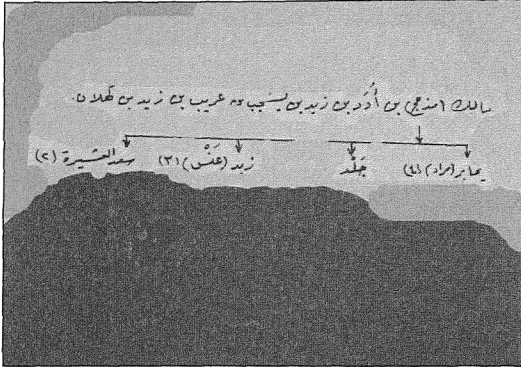 مالك (مذحج) بن أُدَد بن زيد بن يشجب بن عريب بن زيد بن كهلان.
يحابر (مراد) (٤) جَلْد زيد (عَنْس) (٣) سعد العشيرة (٢)